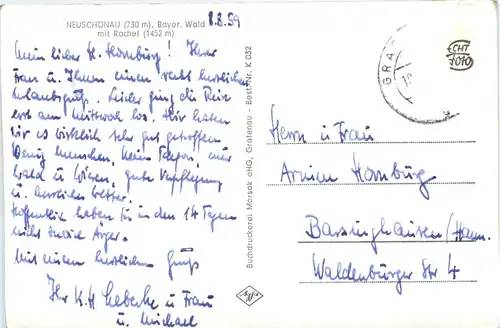 NEUSCHÖNAU (730 m), Bayer. Wald
mit Rachel (1452 m)
1.8.59
Mein lieber H. Hornburg! Ihrer
Frau u. Ihnen einen recht herzlichen
Urlaubsgruß. Leider ging die Reise
erst am Mittwoch los. Wir haben
wir es wirklich sehr gut getroffen
Wenig Menschen, kein, nur
Wald u. Wiesen, gute Verpflegung
u. herrliches Wetter.
Hoffentlich haben Sie in den 14 Tagen
nicht zuviel Ärger.
Mit einem herzlichen Gruß
Ihr K.H. u Frau
u. Michael
Buchdruckerei Morsak oHG, Grafenau - Best.-Nr. K 032
Agfa
GRAF
ECHT
FOTO
Herrn u. Frau
Armin Hornburg
Barsinghausen/Hann.
Waldenburger Str 4